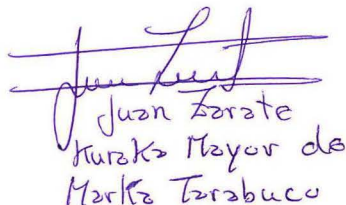 Juan Zarate
Kuraka Mayor de
Marka Tarabuco